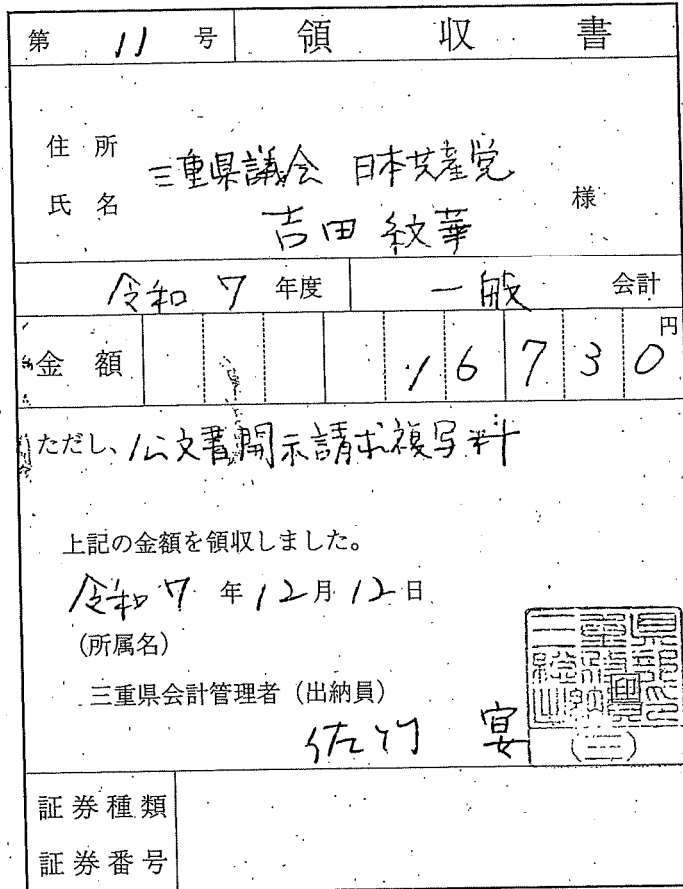 第 11 号 領収書
住所
三重県議会 日本共産党
氏名 様
吉田 紋華
令和 7 年度 一般 会計
金額 16730 円
ただし、公文書開示請求複写料
上記の金額を領収しました。
令和 7 年 12 月 12 日
(所属名)
三重県会計管理者(出納員)
佐竹 宴
(三)
証券種類
証券番号